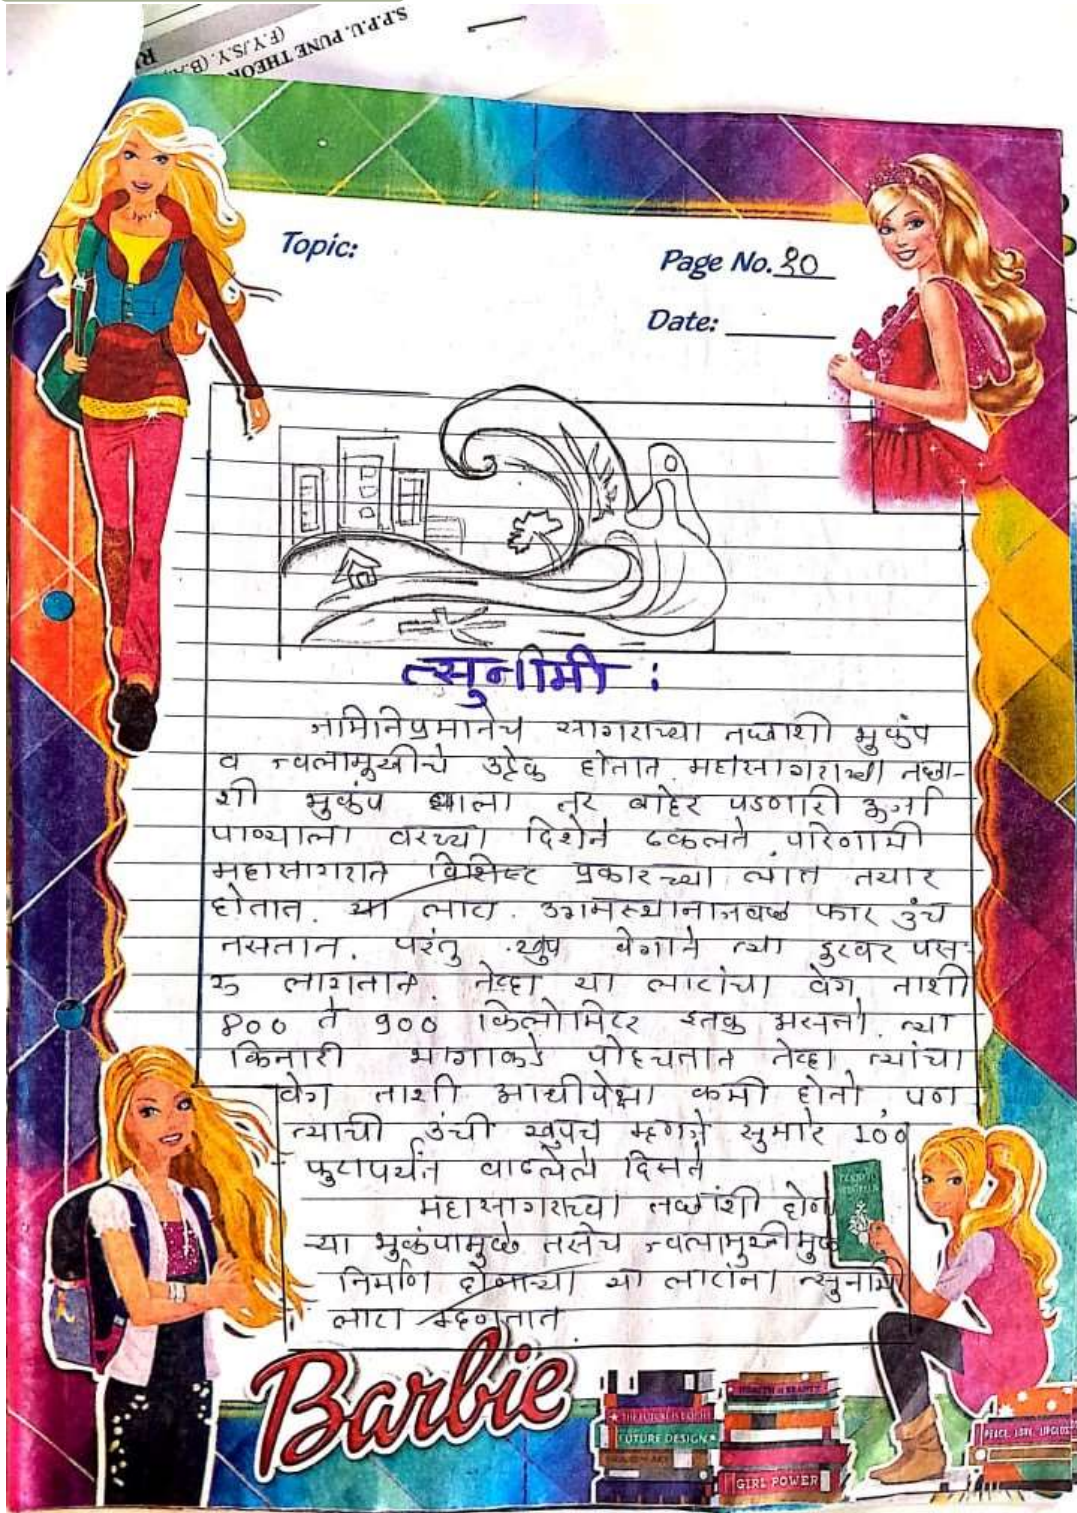 S.P.P.U. PUNE THEOR
(F.Y./S.Y. (B.A.
Topic:
Page No. 20
Date:
त्सुनामी :
जमिनीप्रमानेच सागराच्या तळाशी भुकंप
व ज्वलामुखीचे उद्रेक होतात. महासागराच्या तळा-
शी भुकंप झाला तर बाहेर पडणारी ऊर्जा
पाण्याला वरच्या दिशेने ढकलते. परिणामी
महासागरात विशिष्ट प्रकारच्या लाटा तयार
होतात. या लाटा उगमस्थानाजवळ फार उंच
नसतात. परंतु खुप वेगाने त्या दुरवर पस-
रू लागतात. तेव्हा या लाटांचा वेग ताशी
800 ते 900 किलोमिटर इतकु असतो. त्या
किनारी भागाकडे पोहचतात तेव्हा त्यांचा
वेग ताशी आधीपेक्षा कमी होतो, पण
त्याची उंची खुपच म्हणजे सुमारे 100
फुटापर्यंत वाढलेली दिसते
महासागराच्या तळांशी होण
ऱ्या भुकंपामुळे तसेच ज्वलामुखीमुळ
निर्माण होणाऱ्या या लाटांना त्सुनामी
लाटा म्हणतात.
Barbie
THE FUTURE IS BRIGHT
FUTURE DESIGN
HEALTH & BEAUTY
GIRL POWER
PEACE, LOVE, LIPGLOSS